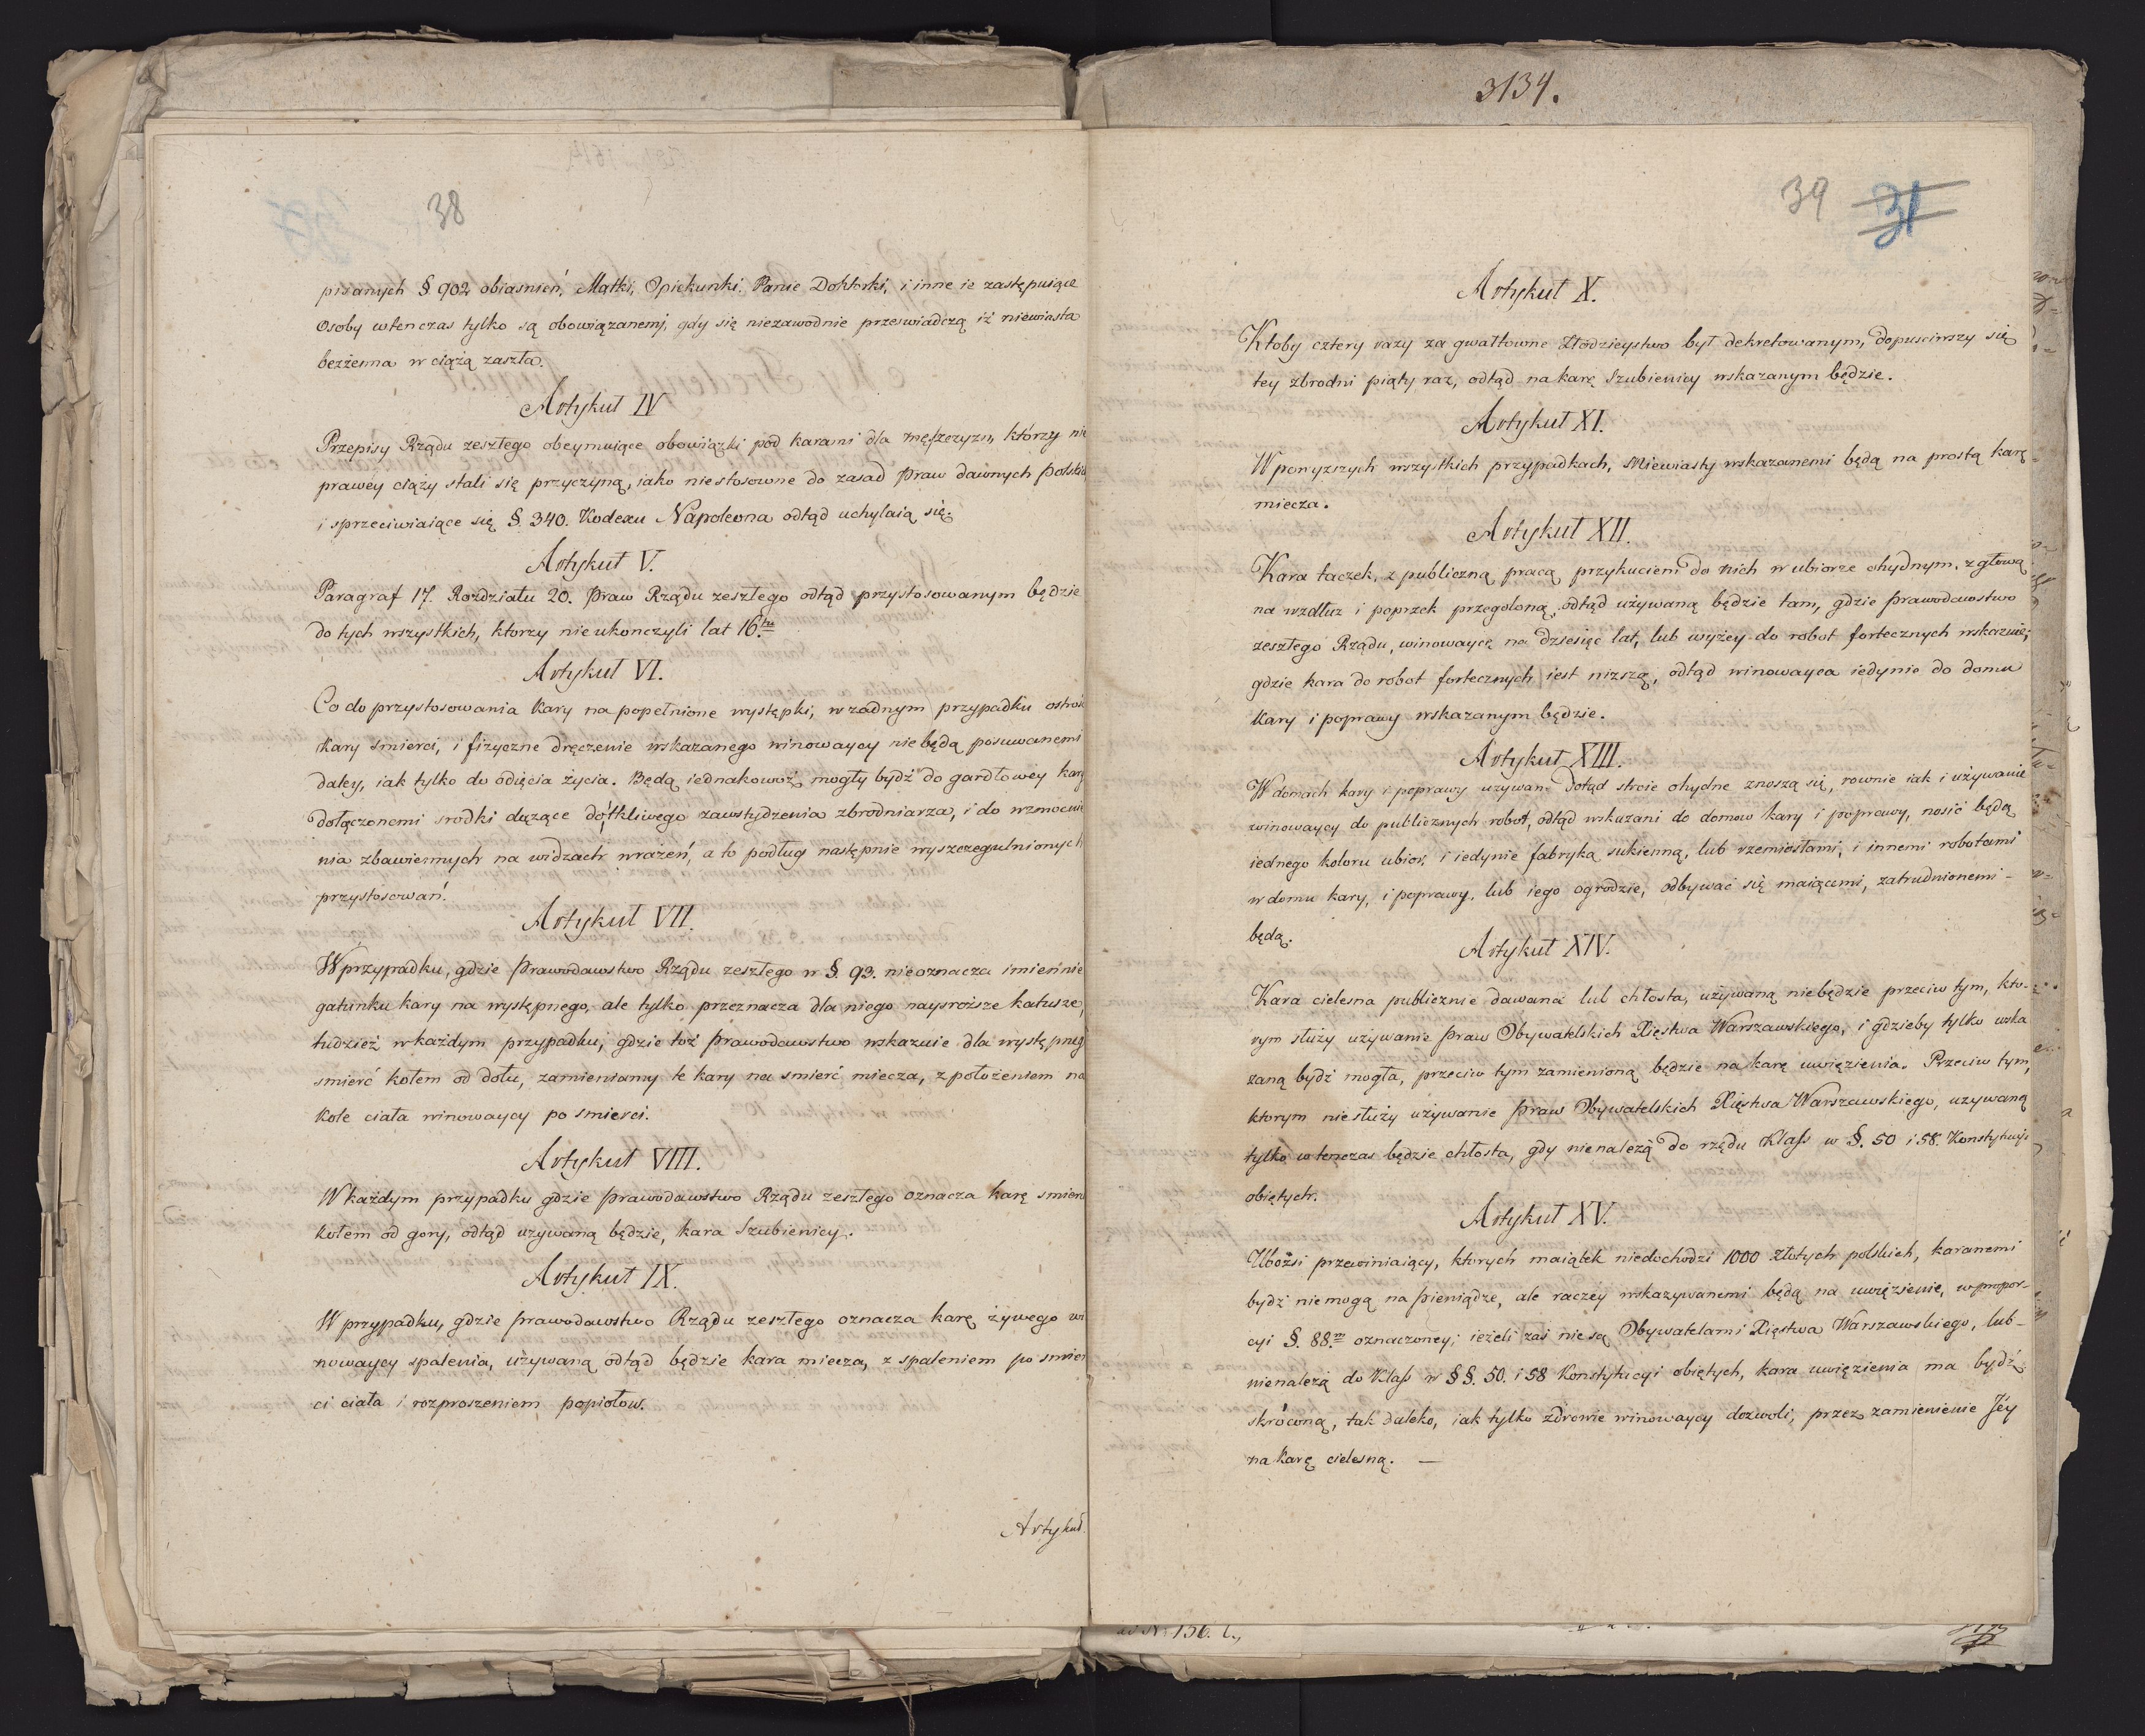 38
pisanych §. 902 obiasnień, Matki, Opiekunki, Panie Doktorki, i inne ie zastępuiące
osoby wtenczas tylko są obowiązanemi, gdy się niezawodnie przeswiadczą iż niewiasta
bezżenna w ciążą zaszła.
Artykuł IV
Przepisy Rządu zeszłego obeymuiące obowiązki pod karami dla mężczyzn, którzy nie
prawey ciąży stali się przyczyną, iako niestosowne do zasad Praw dawnych Polski
i sprzeciwiaiące się §. 340. Kodexu Napoleona odtąd uchylaią się.
Artykuł V.
Paragraf 17. Rozdziału 20. Praw Rządu zeszłego odtąd przystosowanym będzie
do tych wszystkich, ktorzy nieukonczyli lat 16.tu
Artykuł VI.
Co do przystosowania Kary na popełnione występki, w żadnym przypadku ostroś
Kary smierci, i fizyczne dręczenie wskazanego winowaycy niebędą posuwanemi
daley, iak tylko do odięcia życia. Będą iednakowoż mogły bydź do gardłowey kary
dołączonemi srodki dążące dotkliwego zawstydzenia zbrodniarza, i do wzmocnie
nia zbawiennych na widzach wrażeń, a to podług następnie wyszczegulnionych
przystosowań.
Artykuł VII.
W przypadku, gdzie Prawodawstwo Rządu zeszłego w §. 93. nieoznacza imiennie
gatunku kary na występnego, ale tylko przeznacza dla niego naysroższe katusze,
tudzież w każdym przypadku, gdzie toż Prawodawstwo wskazuie dla występneg
smierć kołem od dołu, zamieniamy te kary na smierć miecza, z położeniem na
Kole ciała winowaycy po smierci.
Artykuł VIII.
W każdym przypadku gdzie Prawodawstwo Rządu zeszłego oznacza karę smierc
Kołem od gory, odtąd używaną będzie, kara Szubienicy.
Artykuł IX.
W przypadku, gdzie Prawodawstwo Rządu zeszłego oznacza karę żywego wi
nowaycy spalenia, używaną odtąd będzie kara miecza, z spaleniem po smier
ci ciała i rozproszeniem popiołow.
Artykuł.
3134.
39 31
Artykuł X.
Ktoby cztery razy za gwałtowne złodzieystwo był dekretowanym, dopusciwszy się
tey zbrodni piąty raz, odtąd na karę Szubienicy wskazanym będzie.
Artykuł XI.
W ponyższych wszystkich przypadkach, Niewiasty wskazanemi będą na prostą karę
miecza.
Artykuł XII.
Kara taczek, z publiczną pracą przykuciem do nich w ubiorze ohydnym, z głową
na wzdłuz i poprzek przegoloną, odtąd używaną będzie tam, gdzie Prawodawstwo
zeszłego Rządu, winowaycę na dziesięć lat, lub wyżey do robot fortecznych wskazuie;
gdzie kara do robot fortecznych iest nizszą, odtąd winowayca iedynie do domu
Kary i poprawy wskazanym będzie.
Artykuł XIII.
W domach kary i poprawy uzywane dotąd stroie ohydne znoszą się, rownie iak i używanie
winowaycy do publicznych robot, odtąd wskazani do domow kary i poprawy, nosić będą
iednego koloru ubior, i iedynie fabryką sukienną, lub rzemiosłami, i innemi robotami
w domu kary, i poprawy, lub iego ogrodzie, odbywać się maiącemi, zatrudnionemi -
będą.
Artykuł XIV.
Kara cielesna publicznie dawana lub chłosta, używaną niebędzie przeciw tym, kto-
rym służy używanie Praw Obywatelskich Xięstwa Warszawskiego, i gdzieby tylko wska
zaną bydź mogła, przeciw tym zamienioną będzie na karę uwięzienia. Przeciw tym,
ktorym niesłuży używanie Praw Obywatelskich Xięstwa Warszawskiego, uzywaną
tylko w tenczas będzie chłosta, gdy nienależą do rzędu Klass w §. 50 i 58. Konstytucyi
obiętych.
Artykuł XV.
Ubożsi przewiniaiący, ktorych maiątek niedochodzi 1000 Złotych polskich, karanemi
bydź niemogą na pieniądze, ale raczey wskazywanemi będą na uwięzienie, w propor-
cyi §. 88.m oznaczoney; ieżeli zaś nie są Obywatelami Xięstwa Warszawskiego, lub -
nienależą do Klass w §§. 50. i 58 Konstytucyi obiętych, kara uwięzienia ma bydź
skróconą, tak daleko, iak tylko zdrowie winowaycy dozwoli, przez zamienienie Jéy
na karę cielesną. —